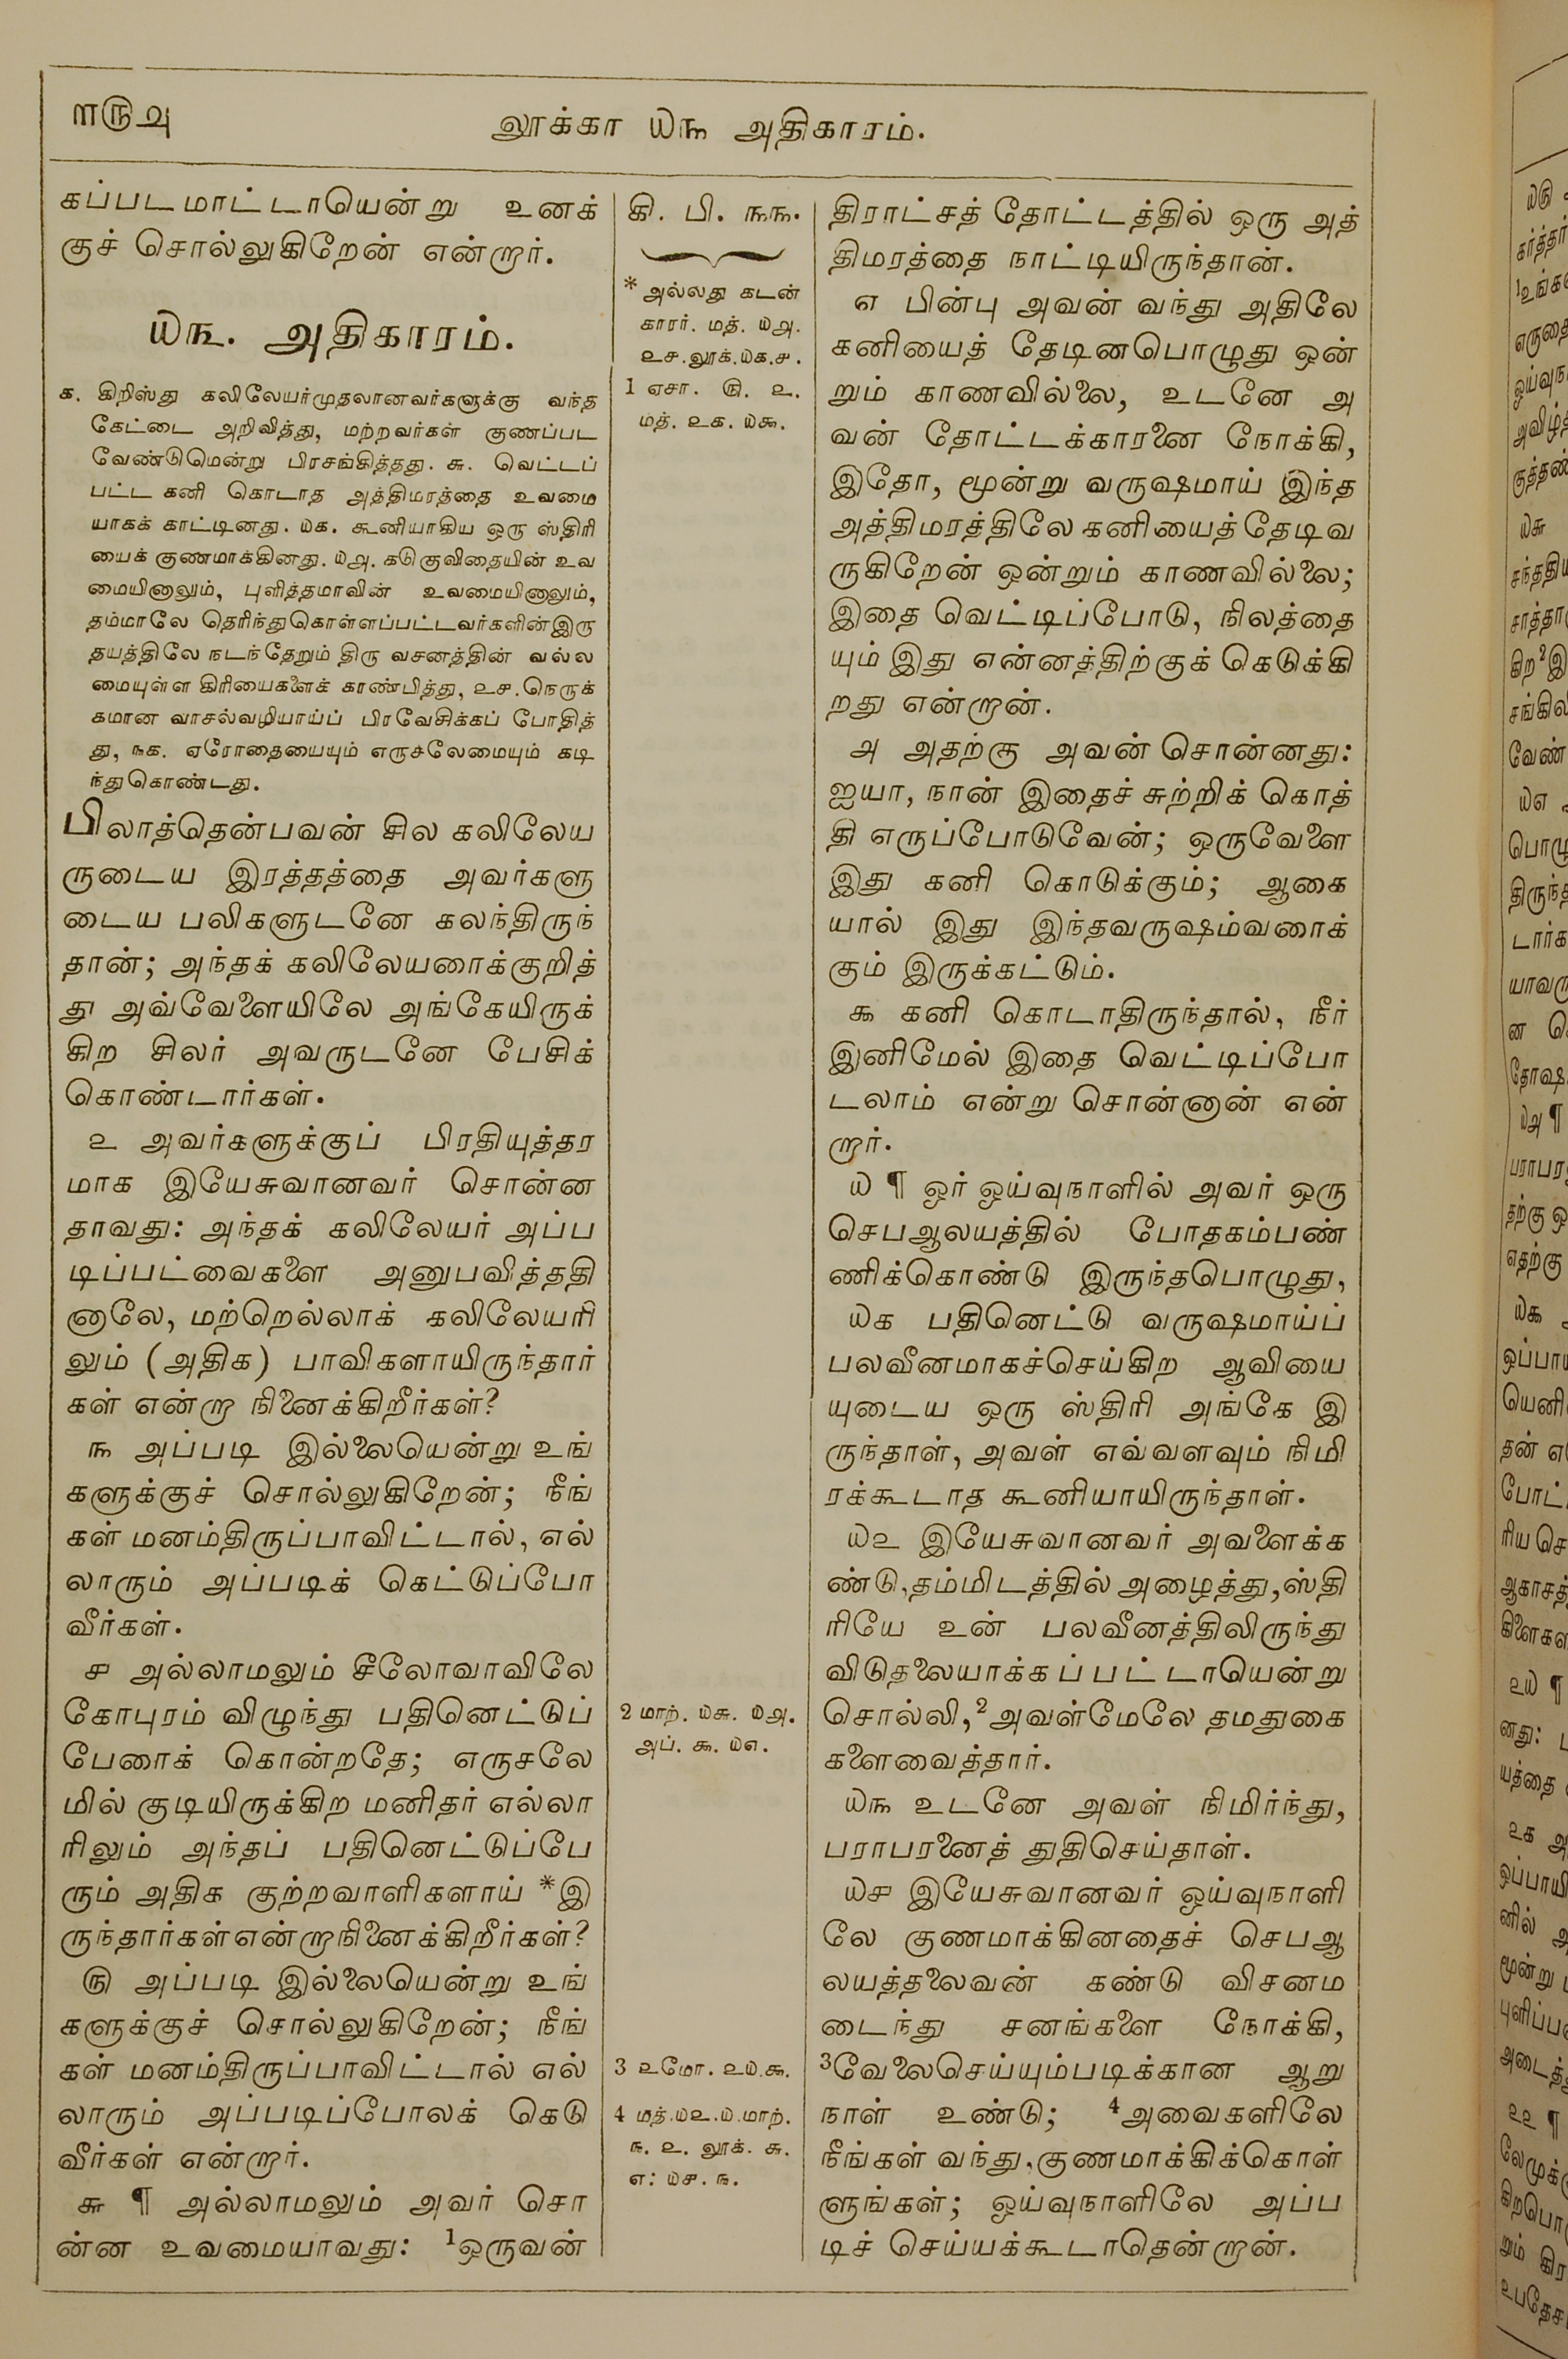 ாரு௮
லூக்கா ௰௩ அதிகாரம்.
கப்படமாட்டாயென்று உனக்
குச் சொல்லுகிறேன் என்றார்.
௰௩. அதிகாரம்.
௧. கிறிஸ்து கலிலேயர்முதலானவர்களுக்கு வந்த
கேட்டை அறிவித்து, மற்றவர்கள் குணப்பட
வேண்டுமென்று பிரசங்கித்தது. ௬. வெட்டப்
பட்ட கனி கொடாத அத்திமரத்தை உவமை
யாகக் காட்டினது. ௰௧. கூனியாகிய ஒரு ஸ்திரி
யைக் குணமாக்கினது. ௰௮. கடுகுவிதையின் உவ
மையினாலும், புளித்தமாவின் உவமையினாலும்,
தம்மாலே தெரிந்துகொள்ளப்பட்டவர்களின்இரு
தயத்திலே நடந்தேறும் திரு வசனத்தின் வல்ல
மையுள்ள கிரியைகளைக் காண்பித்து, ௨௪. நெருக்
கமான வாசல்வழியாய்ப் பிரவேசிக்கப் போதித்
து, ௩௧. ஏரோதையையும் எருச்லேமையும் கடி
ந்துகொண்டது.
பிலாத்தென்பவன் சில கலிலேய
ருடைய இரத்தத்தை அவர்களு
டைய பலிகளுடனே கலந்திருந்
தான்; அந்தக் கலிலேயரைக்குறித்
து அவ்வேளையிலே அங்கேயிருக்
கிற சிலர் அவருடனே பேசிக்
கொண்டார்கள்.
௨ அவர்களுக்குப் பிரதியுத்தர
மாக இயேசுவானவர் சொன்ன
தாவது: அந்தக் கலிலேயர் அப்ப
டிப்பட்வைகளை அனுபவித்ததி
னாலே, மற்றெல்லாக் கலிலேயரி
லும் (அதிக) பாவிகளாயிருந்தார்
கள் என்றா நினைக்கிறீர்கள்?
௩ அப்படி இல்லையென்று உங்
களுக்குச் சொல்லுகிறேன்; நீங்
கள் மனம்திருப்பாவிட்டால், எல்
லாரும் அப்படிக் கெட்டுப்போ
வீர்கள்.
௪ அல்லாமலும் சீலோவாவிலே
கோபுரம் விழுந்து பதினெட்டுப்
பேரைக் கொன்றதே; எருசலே
மில் குடியிருக்கிற மனிதர் எல்லா
ரிலும் அந்தப் பதினெட்டுப்பே
ரும் அதிக குற்றவாளிகளாய் *இ
ருந்தார்கள்என்றாநினைக்கிறீர்கள்?
௫ அப்படி இல்லையென்று உங்
களுக்குச் சொல்லுகிறேன்; நீங்
கள் மனம்திருப்பாவிட்டால் எல்
லாரும் அப்படிப்போலக் கெடு
வீர்கள் என்றார்.
௬ ¶ அல்லாமலும் அவர் சொ
ன்ன உவமையாவது: 1ஒருவன்
கி. பி. ௩௩.
* அல்லது கடன்
காரர். மத். ௰௮.
௨௪. லூக். ௰௧. ௪.
1 ஏசா. ௫. ௨.
மத். ௨௧. ௰௯.
2 மாற். ௰௬. ௰௮.
அப். ௯. ௰௭.
3 உமோ. ௨௰. ௯.
4 மத். ௰௨. ௰. மாற்.
௩. ௨. லூக். ௬.
௭: ௰௪. ௩.
திராட்சத் தோட்டத்தில் ஒரு அத்
திமரத்தை நாட்டியிருந்தான்.
௭ பின்பு அவன் வந்து அதிலே
கனியைத் தேடினபொழுது ஒன்
றும் காணவில்லை, உடனே அ
வன் தோட்டக்காரனை நோக்கி,
இதோ, மூன்று வருஷமாய் இந்த
அத்திமரத்திலே கனியைத்தேடிவ
ருகிறேன் ஒன்றும் காணவில்லை;
இதை வெட்டிப்போடு, நிலத்தை
யும் இது என்னத்திற்குக் கெடுக்கி
றது என்றான்.
௮ அதற்கு அவன் சொன்னது:
ஐயா, நான் இதைச் சுற்றிக் கொத்
தி எருப்போடுவேன்; ஒருவேளை
இது கனி கொடுக்கும்; ஆகை
யால் இது இந்தவருஷம்வரைக்
கும் இருக்கட்டும்.
௯ கனி கொடாதிருந்தால், நீர்
இனிமேல் இதை வெட்டிப்போ
டலாம் என்று சொன்னான் என்
றார்.
௰ ¶ ஓர் ஓய்வுநாளில் அவர் ஒரு
செபஆலயத்தில் போதகம்பண்
ணிக்கொண்டு இருந்தபொழுது,
௰௧ பதினெட்டு வருஷமாய்ப்
பலவீனமாகச்செய்கிற ஆவியை
யுடைய ஒரு ஸ்திரி அங்கே இ
ருந்தாள், அவள் எவ்வளவும் நிமி
ரக்கூடாத கூனியாயிருந்தாள்.
௰௨ இயேசுவானவர் அவளைக்க
ண்டு, தம்மிடத்தில் அழைத்து, ஸ்தி
ரியே உன் பலவீனத்திலிருந்து
விடுதலையாக்கப்பட்டாயென்று
சொல்லி, 2அவள்மேலே தமதுகை
களைவைத்தார்.
௰௩ உடனே அவள் நிமிர்ந்து,
பராபரனைத் துதிசெய்தாள்.
௰௪ இயேசுவானவர் ஓய்வுநாளி
லே குணமாக்கினதைச் செபஆ
லயத்தலைவன் கண்டு விசனம
டைந்து சனங்களை நோக்கி,
3வேலைசெய்யும்படிக்கான ஆறு
நாள் உண்டு; 4அவைகளிலே
நீங்கள் வந்து, குணமாக்கிக்கொள்
ளுங்கள்; ஓய்வுநாளிலே அப்ப
டிச் செய்யக்கூடாதென்றான்.